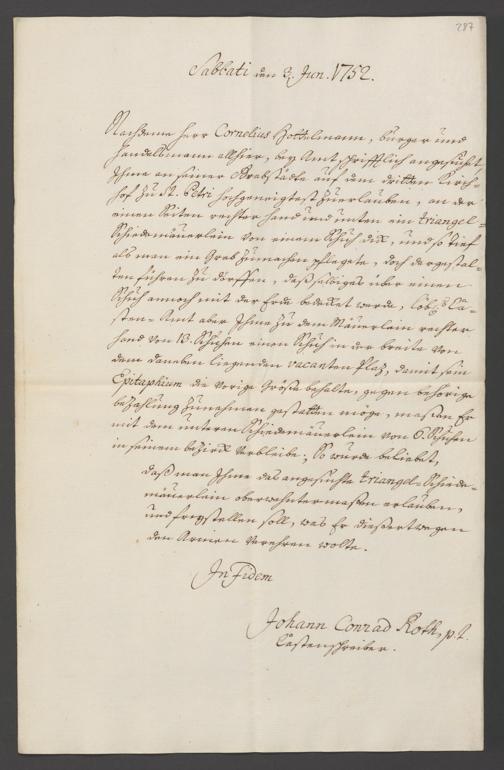 287
Sabbati den 3. Jun. 1752.
Nachdeme Herr Cornelius Hottelmann, burger und
Handelsmann allhier, bey Amt schrifftlich angesucht,
Ihme an seiner Grabstädte auf dem dritten Kirch-
hof zu St. Petri hochgeneigtest zu erlauben, an der
einen Seiten rechter hand und unten ein triangel-
Schiedmäuerlein von einem Schuh dick, und so tief
als man ein Grab zu machen pflegete, doch dergestal-
ten führen zu dörffen, daß selbiges über einen
Schuh annoch mit der Erde bedecket werde, Löbl. Ca-
sten-Amt aber Ihme zu dem Mäuerlein rechter
hand von 13. Schuhen einen Schuh in der breite von
dem daneben liegenden vacanten Plaz, damit sein
Epitaphium die vorige Größe behalte, gegen behörige
bezahlung zunehmen gestatten möge, massen Er
mit dem unteren Schiedmäuerlein von 6. Schuhen
in seinem bezirck verbleibe; So wurde beliebet,
daß man Ihme das angesuchte triangel-Schied-
mäuerlein oberwehntermaßen erlauben,
und freystellen soll, was Er dießertwegen
den Armen verehren wolte.
In Fidem
Johann Conrad Roth, p. t.
Castenschreiber.